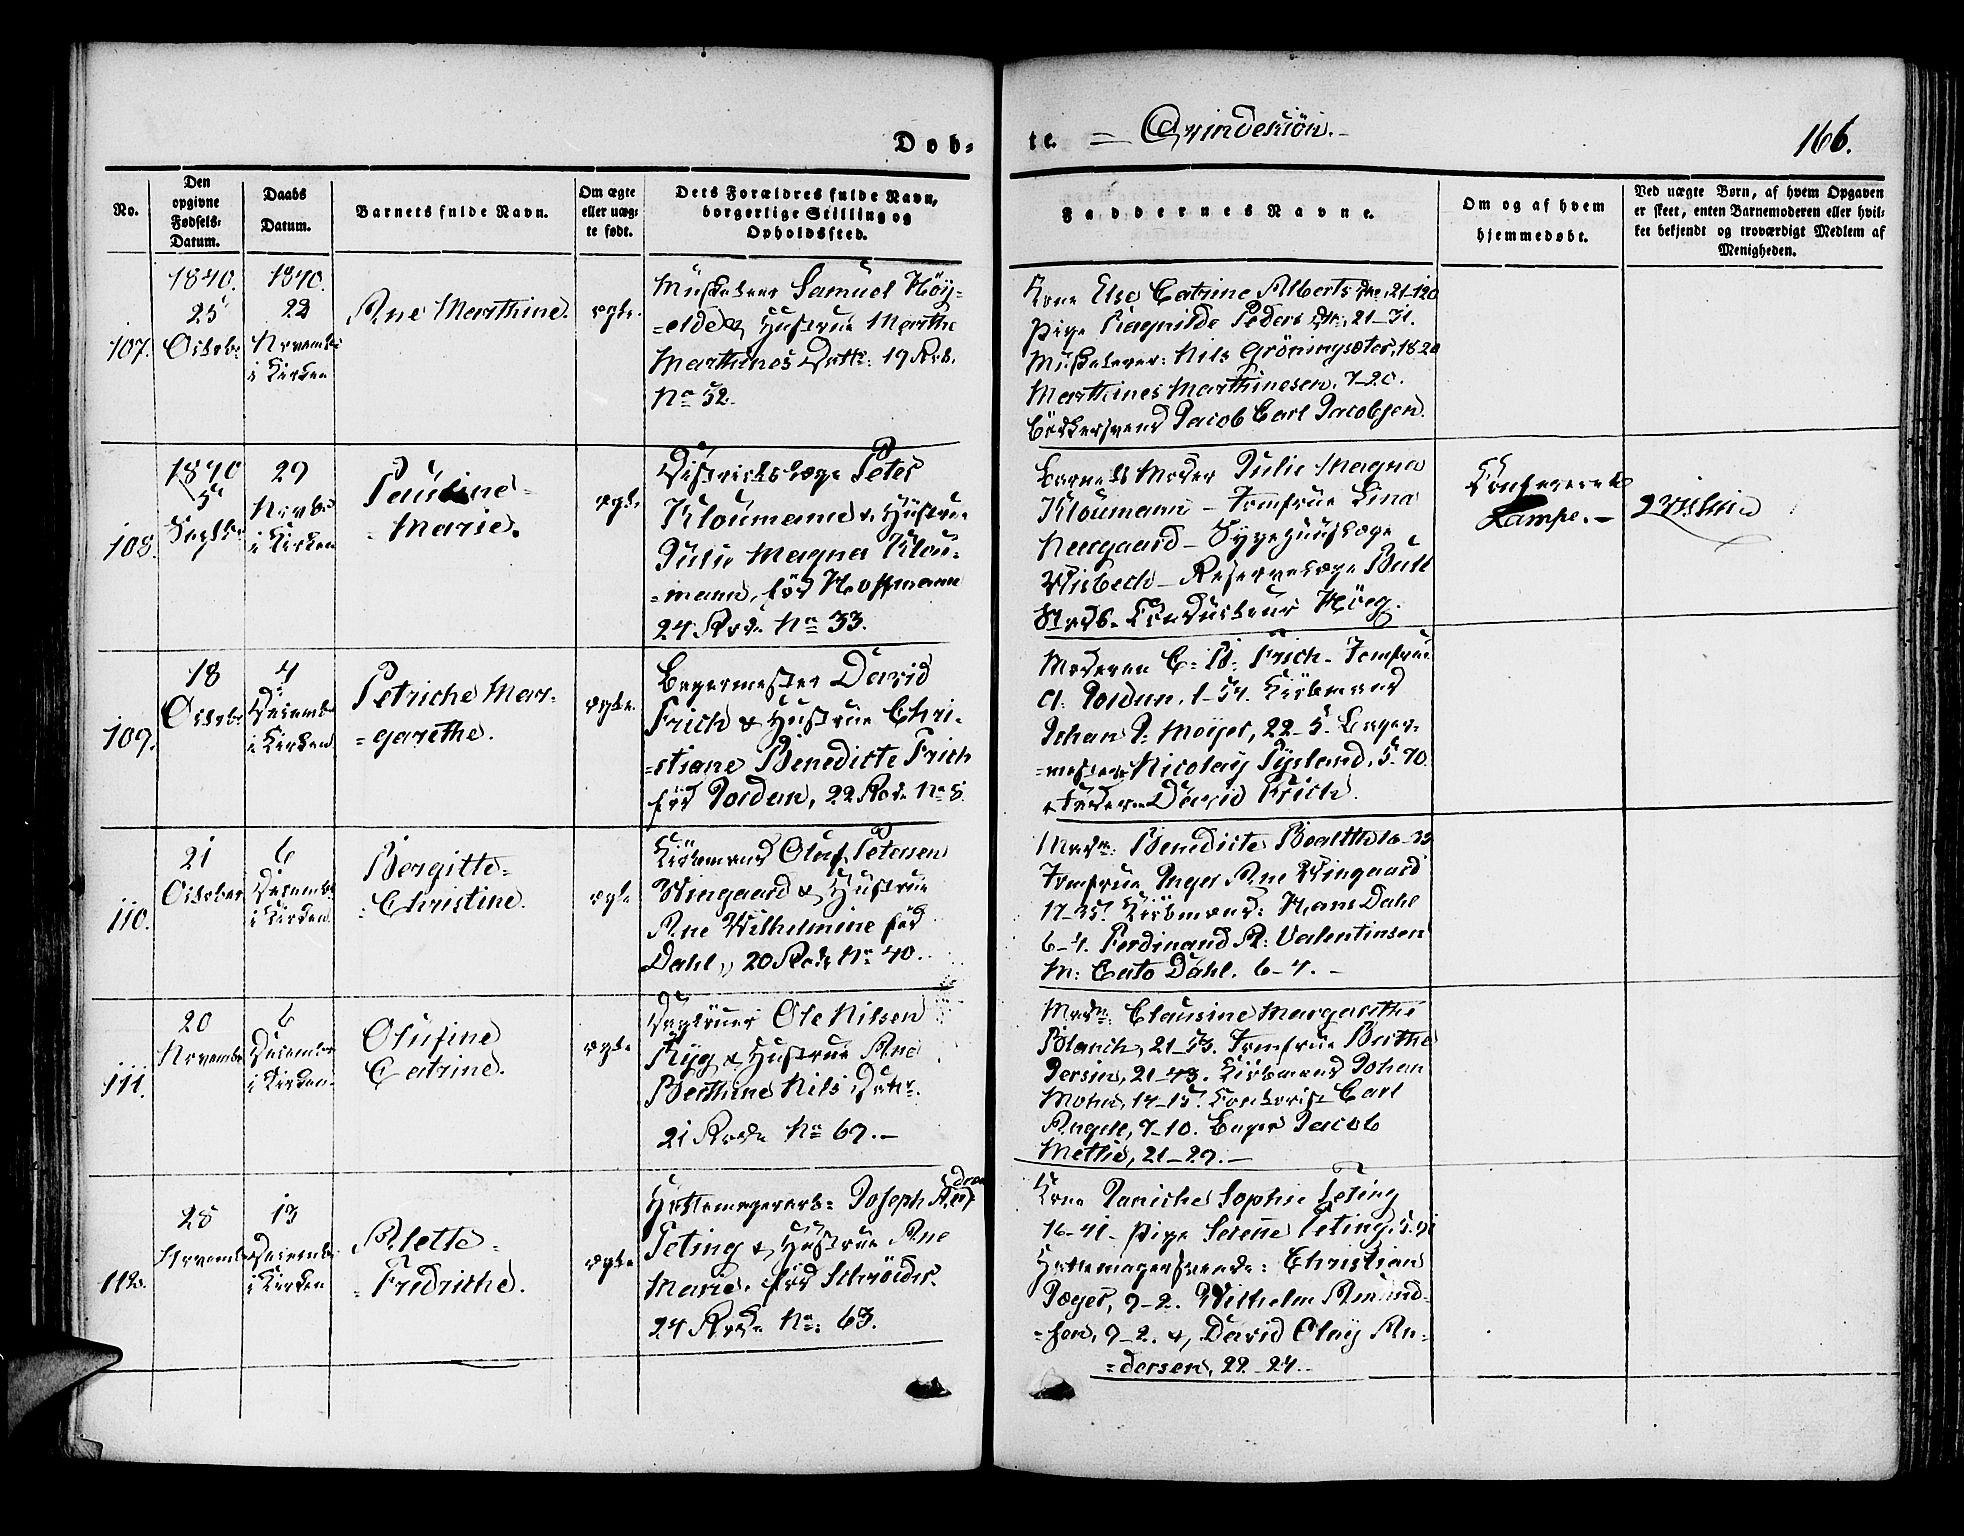 Døb-
te. = Qvindekiøn.-
166.
No.
Den opgivne Fødsels-Datum.
Daabs Datum.
Barnets fulde Navn.
Om ægte eller uægte født.
Dets Forældres fulde Navn, borgerlige Stilling og Opholdssted.
Faddernes Navne.
Om og af hvem hjemmedøbt.
Ved uægte Børn, af hvem Opgaven er skeet, enten Barnemoderen eller hvilket bekjendt og troværdigt Medlem af Menigheden.
107.
1840.
25
Octobr
1840.
22
Novembr
i Kirken
Ane Marthine.
ægte.
Musketeer Samuel Höy-
=elde & Hustrue Marthe
Marthines Dattr: 19 Rode.
No 52.
Kone Else Catrine Alberts Dtr, 21-120
Pige Ragnilde Peders Dtr, 21-31.
Musketerer: Nils Gröningsæter, 1820
Marthines Marthinesen. 7-20.
Bödkersvend Jacob Carl Jacobsen.
108.
1840
5
Septbr
29
Novbr
i Kirken
Pauline=
=Marie.
ægte.
Districtslæge Peter
Kloumann & Hustrue
Julie Magna Klou-
=mann, föd Hoffmann
24 Rode No 33.
Barnets Moder Julie Magna
Kloumann - Jomfrue Lina
Neergaard - Sygehuuslæge
Wisbech - Reservelæge Bull
Stadsconducteur Höeg.
Lampe.-
109.
18
Octobr
4
Decembr
i Kirken
Petriche Mar-
=garethe.
ægte.
Bagermester David
Frich & Hustrue Chri-
=stiane Benedicte Frich
föd Jordan, 22 Rode No 5.
Moderen C: B: Frich - Jomfrue
A. Jordan, 1-54. Kiöbmand
Johan J: Meyer, 22-5. Bager-
=mester Nicolay Tysland, 5-70.
& Faderen David Frich.
110.
21
October
6
Decembr
i Kirken
Bergitte=
=Christine.
ægte
Kiöbmand Oluf Petersen
Wingaard & Hustrue
Ane Wilhelmine föd
Dahl, 20 Rode No 40.
Madm: Benedicte
Jomfrue Inger Ane Wingaard
17-35. Kiöbmænd: Hans Dahl
6-4. Ferdinand R: Valentinsen
M: Cato Dahl. 6-4.-
111.
20
Novembr
6
Decembr
i Kirken.
Olufine
Catrine.
ægte
Ole Nilsen
Ryg & Hustrue Ane
Berthine Nils Datter.
21 Rode No 67.-
Madm: Clausine Margarethe
Blanch, 21-53. Jomfrue Berthe
Persen, 21-43. Kiöbmand Johan
Mohn, 14-15. Contorist Carl
Angell, 7-10. Bager Jacob
Methie, 21-29.-
112.
28
Novembr
13
Decembr
i Kirken
Alette=
=Fredriche.
ægte
Hattemagersv: Joseph Andreas
Teting & Hustrue Ane
Marie, föd Schröder.
24 Rode No: 63.
Kone Janiche Sophie Teting
16-41. Pige Serene Teting, 5-91
Hattemagersvende: Christian
Jæger, 9-2. Wilhelm Amund-
=sen, 9-2. &, David Olay An-
=dersen, 22-24.-